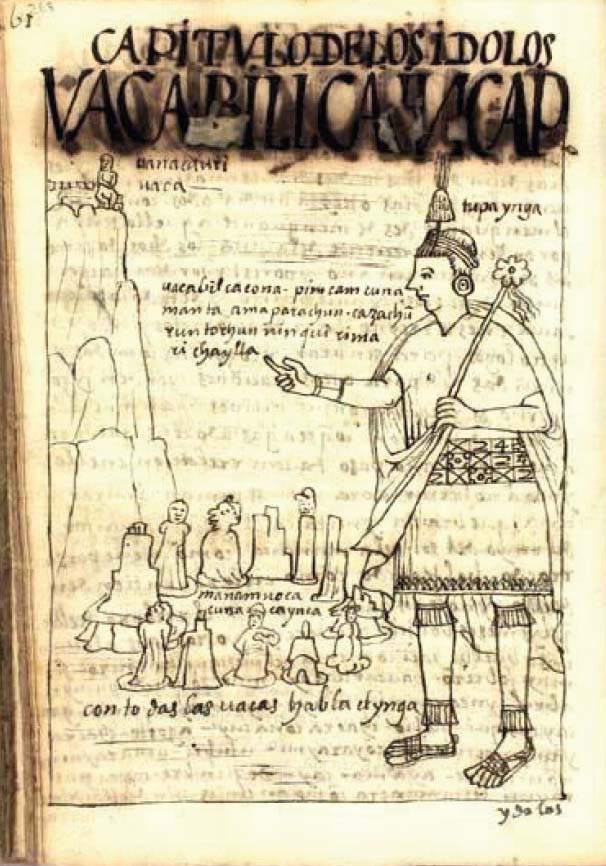 CAPITVLODELOSIDOLOS
VACABILLCAIИCAP
uanacauri
uaca
tupa ynga
uacabilcacona. pim camcuna
manta ama parachun. cazachū
runtochun ninqui rima
ri chaylla
manam uoca
cuna cayaca
con todas las uacas habla elynga
ydolos